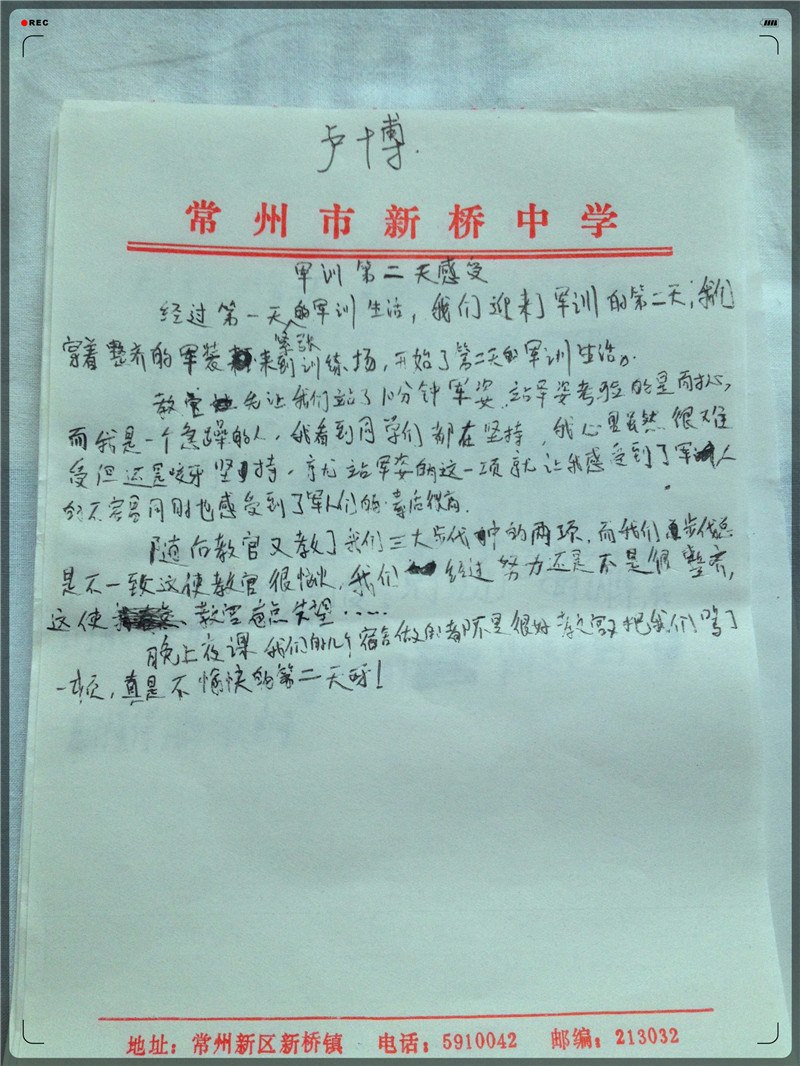 REC
卢博
常州市新桥中学
军训第二天感受
经过第一天紧张的军训生活，我们迎来了军训的第二天，我们
穿着整齐的军装来到训练场，开始了第二天的军训生活。
教官先让我们站了10分钟军姿，站军姿考验的是耐心，
而我是一个急躁的人，我看到同学们都在坚持，我心里虽然很难
受但还是咬牙坚持，就站军姿的这一项就让我感受到了军人
的不容易同时也感受到了军人们的
随后教官又教了我们三大步伐中的两项，而我们步伐总
是不一致这使教官很恼火，我们经过努力还是不是很整齐，
这使教官有点失望……
晚上夜课我们的几个宿舍做的都不是很好教官又把我们骂了
一顿，真是不愉快的第二天呀！
地址：常州新区新桥镇 电话：5910042 邮编：213032